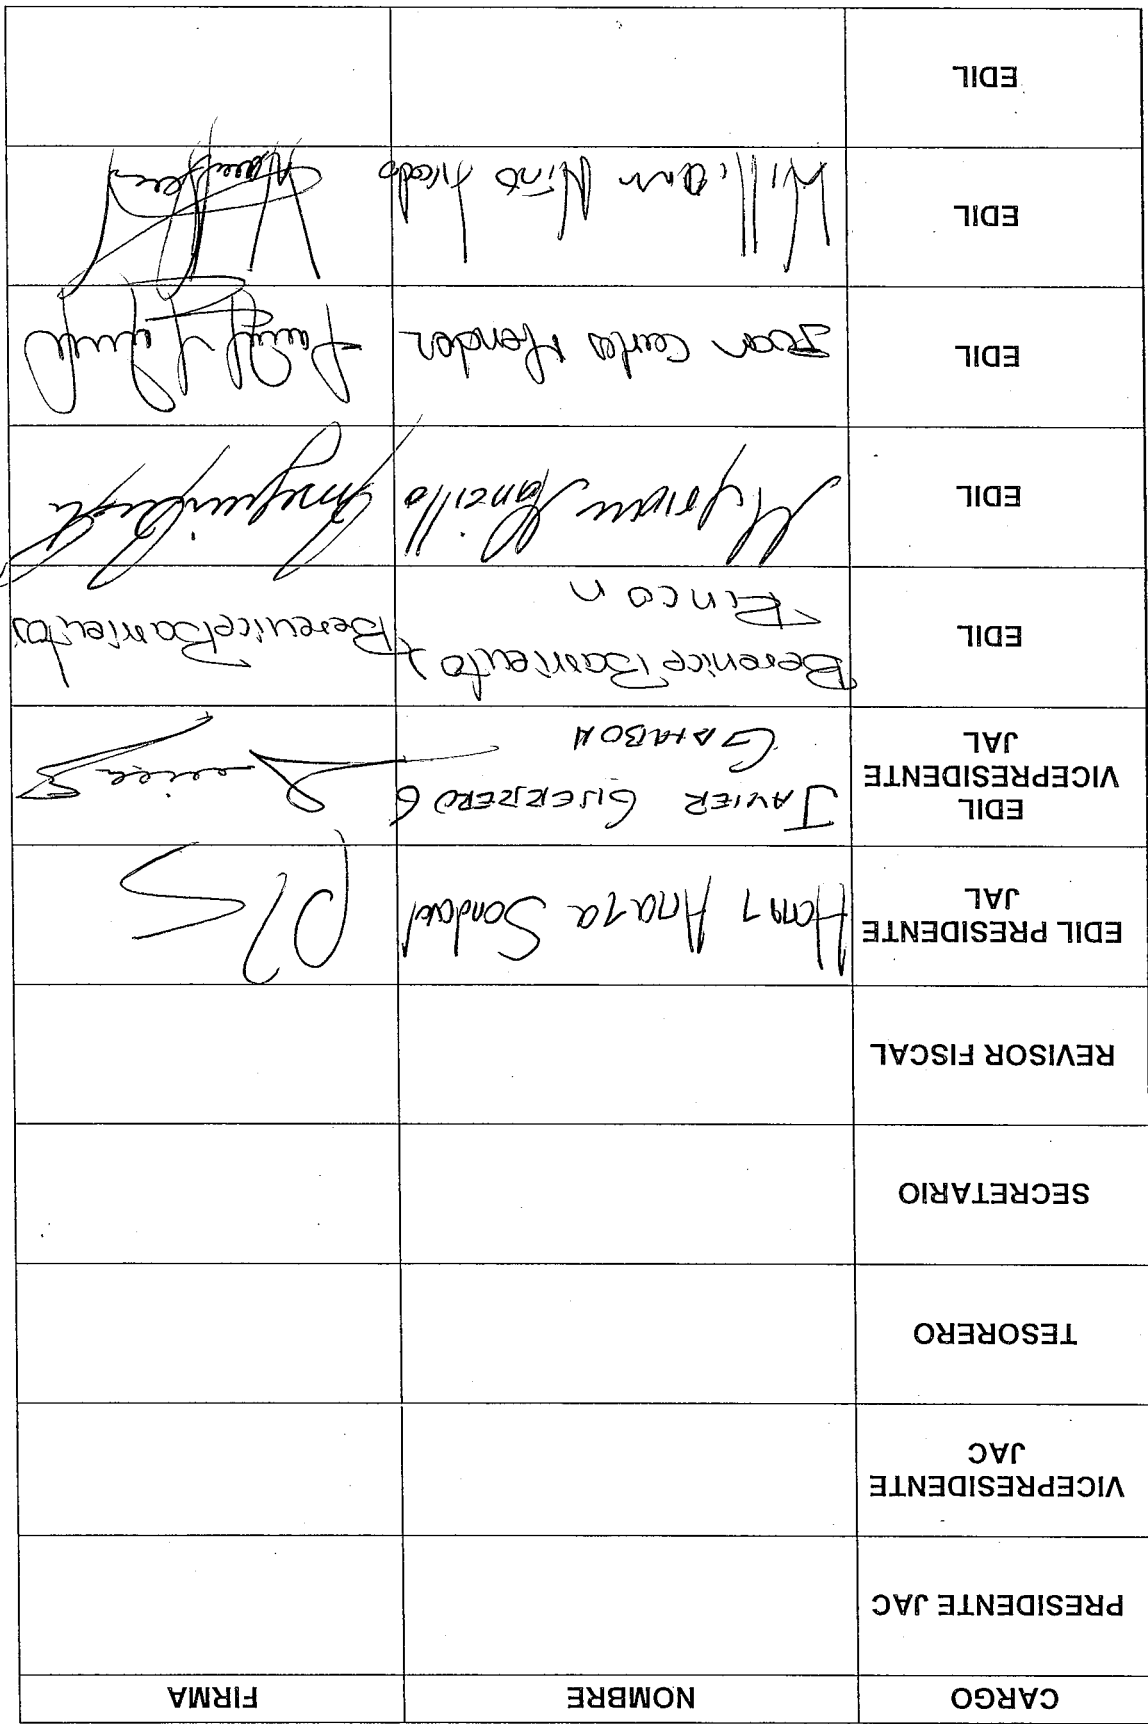 CARGO NOMBRE FIRMA
PRESIDENTE JAC
VICEPRESIDENTE
JAC
TESORERO
SECRETARIO
REVISOR FISCAL
EDIL PRESIDENTE
JAL
Sandoval
EDIL
VICEPRESIDENTE
JAL
JAVIER GUERRERO G
GAMBOA
EDIL
Berenice Barriento
Rincon
Berenice Barrientos
EDIL
Mancilla
EDIL
Juan Carlos Mendez
EDIL
William Niño
EDIL